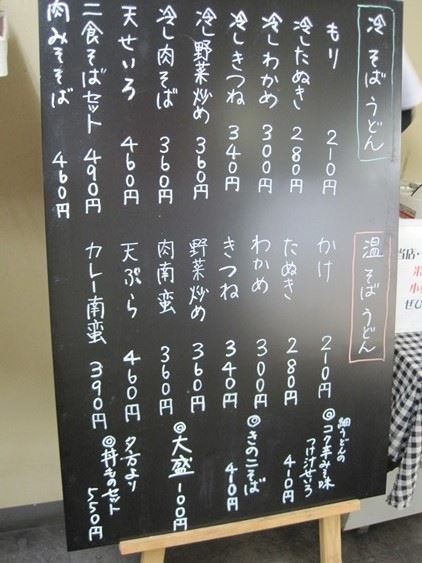 冷そばうどん
もり 210円
冷したぬき 280円
冷しわかめ 300円
冷しきつね 340円
冷し野菜炒め 360円
冷し肉そば 360円
天せいろ 460円
二食そばセット 490円
肉みそそば 460円
温そばうどん
かけ 210円
たぬき 280円
わかめ 300円
きつね 340円
野菜炒め 360円
肉南蛮 360円
天ぷら 460円
カレー南蛮 390円
細うどんの
◎コク辛みそ味
つけ汁せいろ
410円
◎きのこそば
410円
◎大盛 100円
夕方より
◎丼ものセット
550円
当店
小
ぜひ